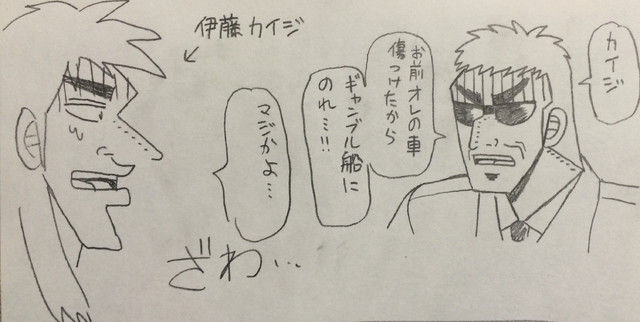 カイジ
お前オレの車
傷つけたから
ギャンブル船に
のれ…!!
伊藤カイジ
マジかよ…
ざわ…